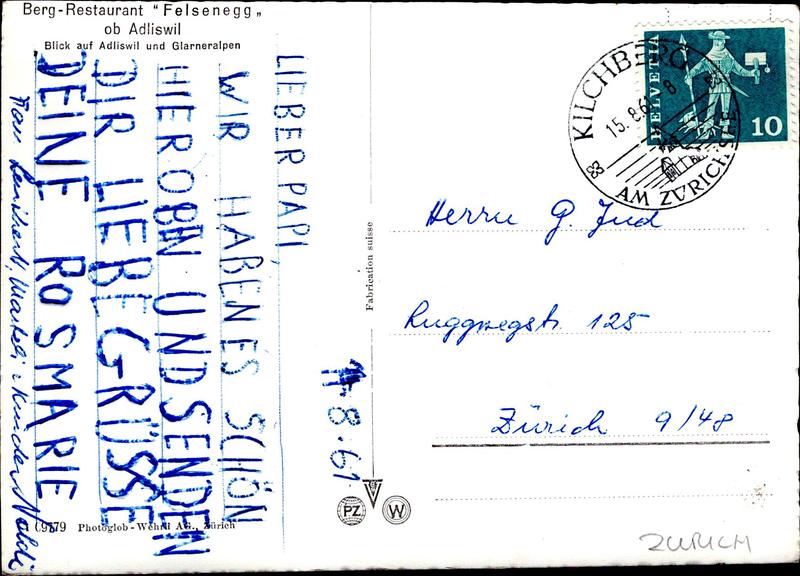 Berg-Restaurant "Felsenegg"
ob Adliswil
Blick auf Adliswil und Glarneralpen
LIEBER PAPI,
WIR HABEN ES SCHÖN
HIER OBN UND SENDEN
DIR LIEBE GRÜSSE
DEINE ROSMARIE
Frau
8.61
C9779 Photoglob-Wehrli AG., Zürich
Fabrication suisse
PZ
W
HELVETIA
10
KILCHBERG
15.8.61-8
AM ZÜRICHSEE
Herrn G. Jud
Ruggwegstr. 125
Zürich 9/48
ZURICH